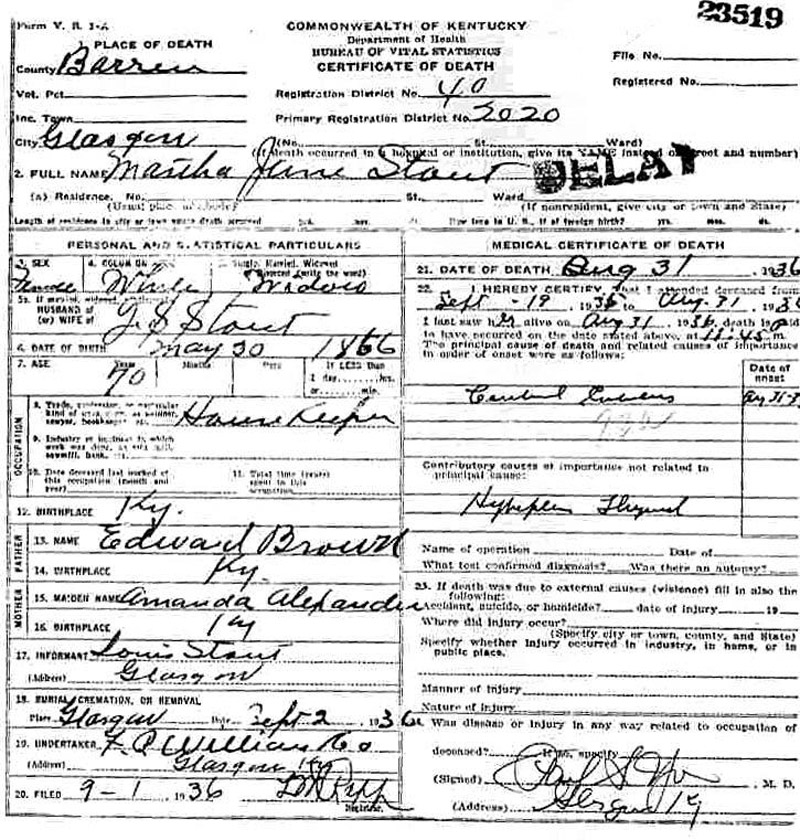 23519
Form V. S. 1-A
COMMONWEALTH OF KENTUCKY
Department of Health
BUREAU OF VITAL STATISTICS
CERTIFICATE OF DEATH
1 PLACE OF DEATH
County Barren
File No.
Registered No.
Vot. Pct
Registration District No. 40
Inc. Town
Primary Registration District No. 2020
City Glasgow (No. St. Ward)
(If death occurred in a hospital or institution, give its NAME instead of street and number)
2. FULL NAME Martha Jane Stout
DELAY
(a) Residence. No. St. Ward
(Usual place of abode) (If nonresident, give city or town and State)
Length of residence in city or town where death occurred yrs. mos. ds. How long in U. S., if of foreign birth? yrs. mos. ds.
PERSONAL AND STATISTICAL PARTICULARS
3. SEX 4. COLOR OR RACE 5. Single, Married, Widowed
Divorced (write the word)
Female White Widow
5a. If married, widowed,
HUSBAND of
(or) WIFE of J. S. Stout
6. DATE OF BIRTH May 30 1866
7. AGE Years Months Days If LESS than
1 day hrs.
or min.
70
OCCUPATION
8. Trade, profession, or particular
kind of work done, as spinner,
sawyer, bookkeeper, etc. House Keeper
9. Industry or business in which
work was done, as silk mill,
sawmill, bank, etc.
10. Date deceased last worked at
this occupation (month and
year)
11. Total time (years)
spent in this
occupation
12. BIRTHPLACE Ky.
FATHER
13. NAME Edward Brown
14. BIRTHPLACE Ky.
MOTHER
15. MAIDEN NAME Amanda Alexander
16. BIRTHPLACE Ky
17. INFORMANT Louis Stout
(Address) Glasgow
18. BURIAL, CREMATION, OR REMOVAL
Place Glasgow Date Sept 2 1936
19. UNDERTAKER Co
(Address) Glasgow Ky
20. FILED 9-1 1936
Registrar.
MEDICAL CERTIFICATE OF DEATH
21. DATE OF DEATH Aug 31 1936
22. I HEREBY CERTIFY, That I attended deceased from
Sept - 19 1935 to Aug. 31 1936
I last saw her alive on Aug 31 1936, death is said
to have occurred on the date stated above, at 11:45 m.
The principal cause of death and related causes of importance
in order of onset were as follows:
Date of
onset
Contributory causes of importance not related to
principal cause:
Name of operation Date of
What test confirmed diagnosis? Was there an autopsy?
23. If death was due to external causes (violence) fill in also the
following:
Accident, suicide, or homicide? date of injury 19
Where did injury occur?
(Specify city or town, county, and State)
Specify whether injury occurred in industry, in home, or in
public place.
Manner of injury
Nature of injury
Was disease or injury in any way related to occupation of
deceased? If so, specify
(Signed) M. D.
(Address) Glasgow Ky